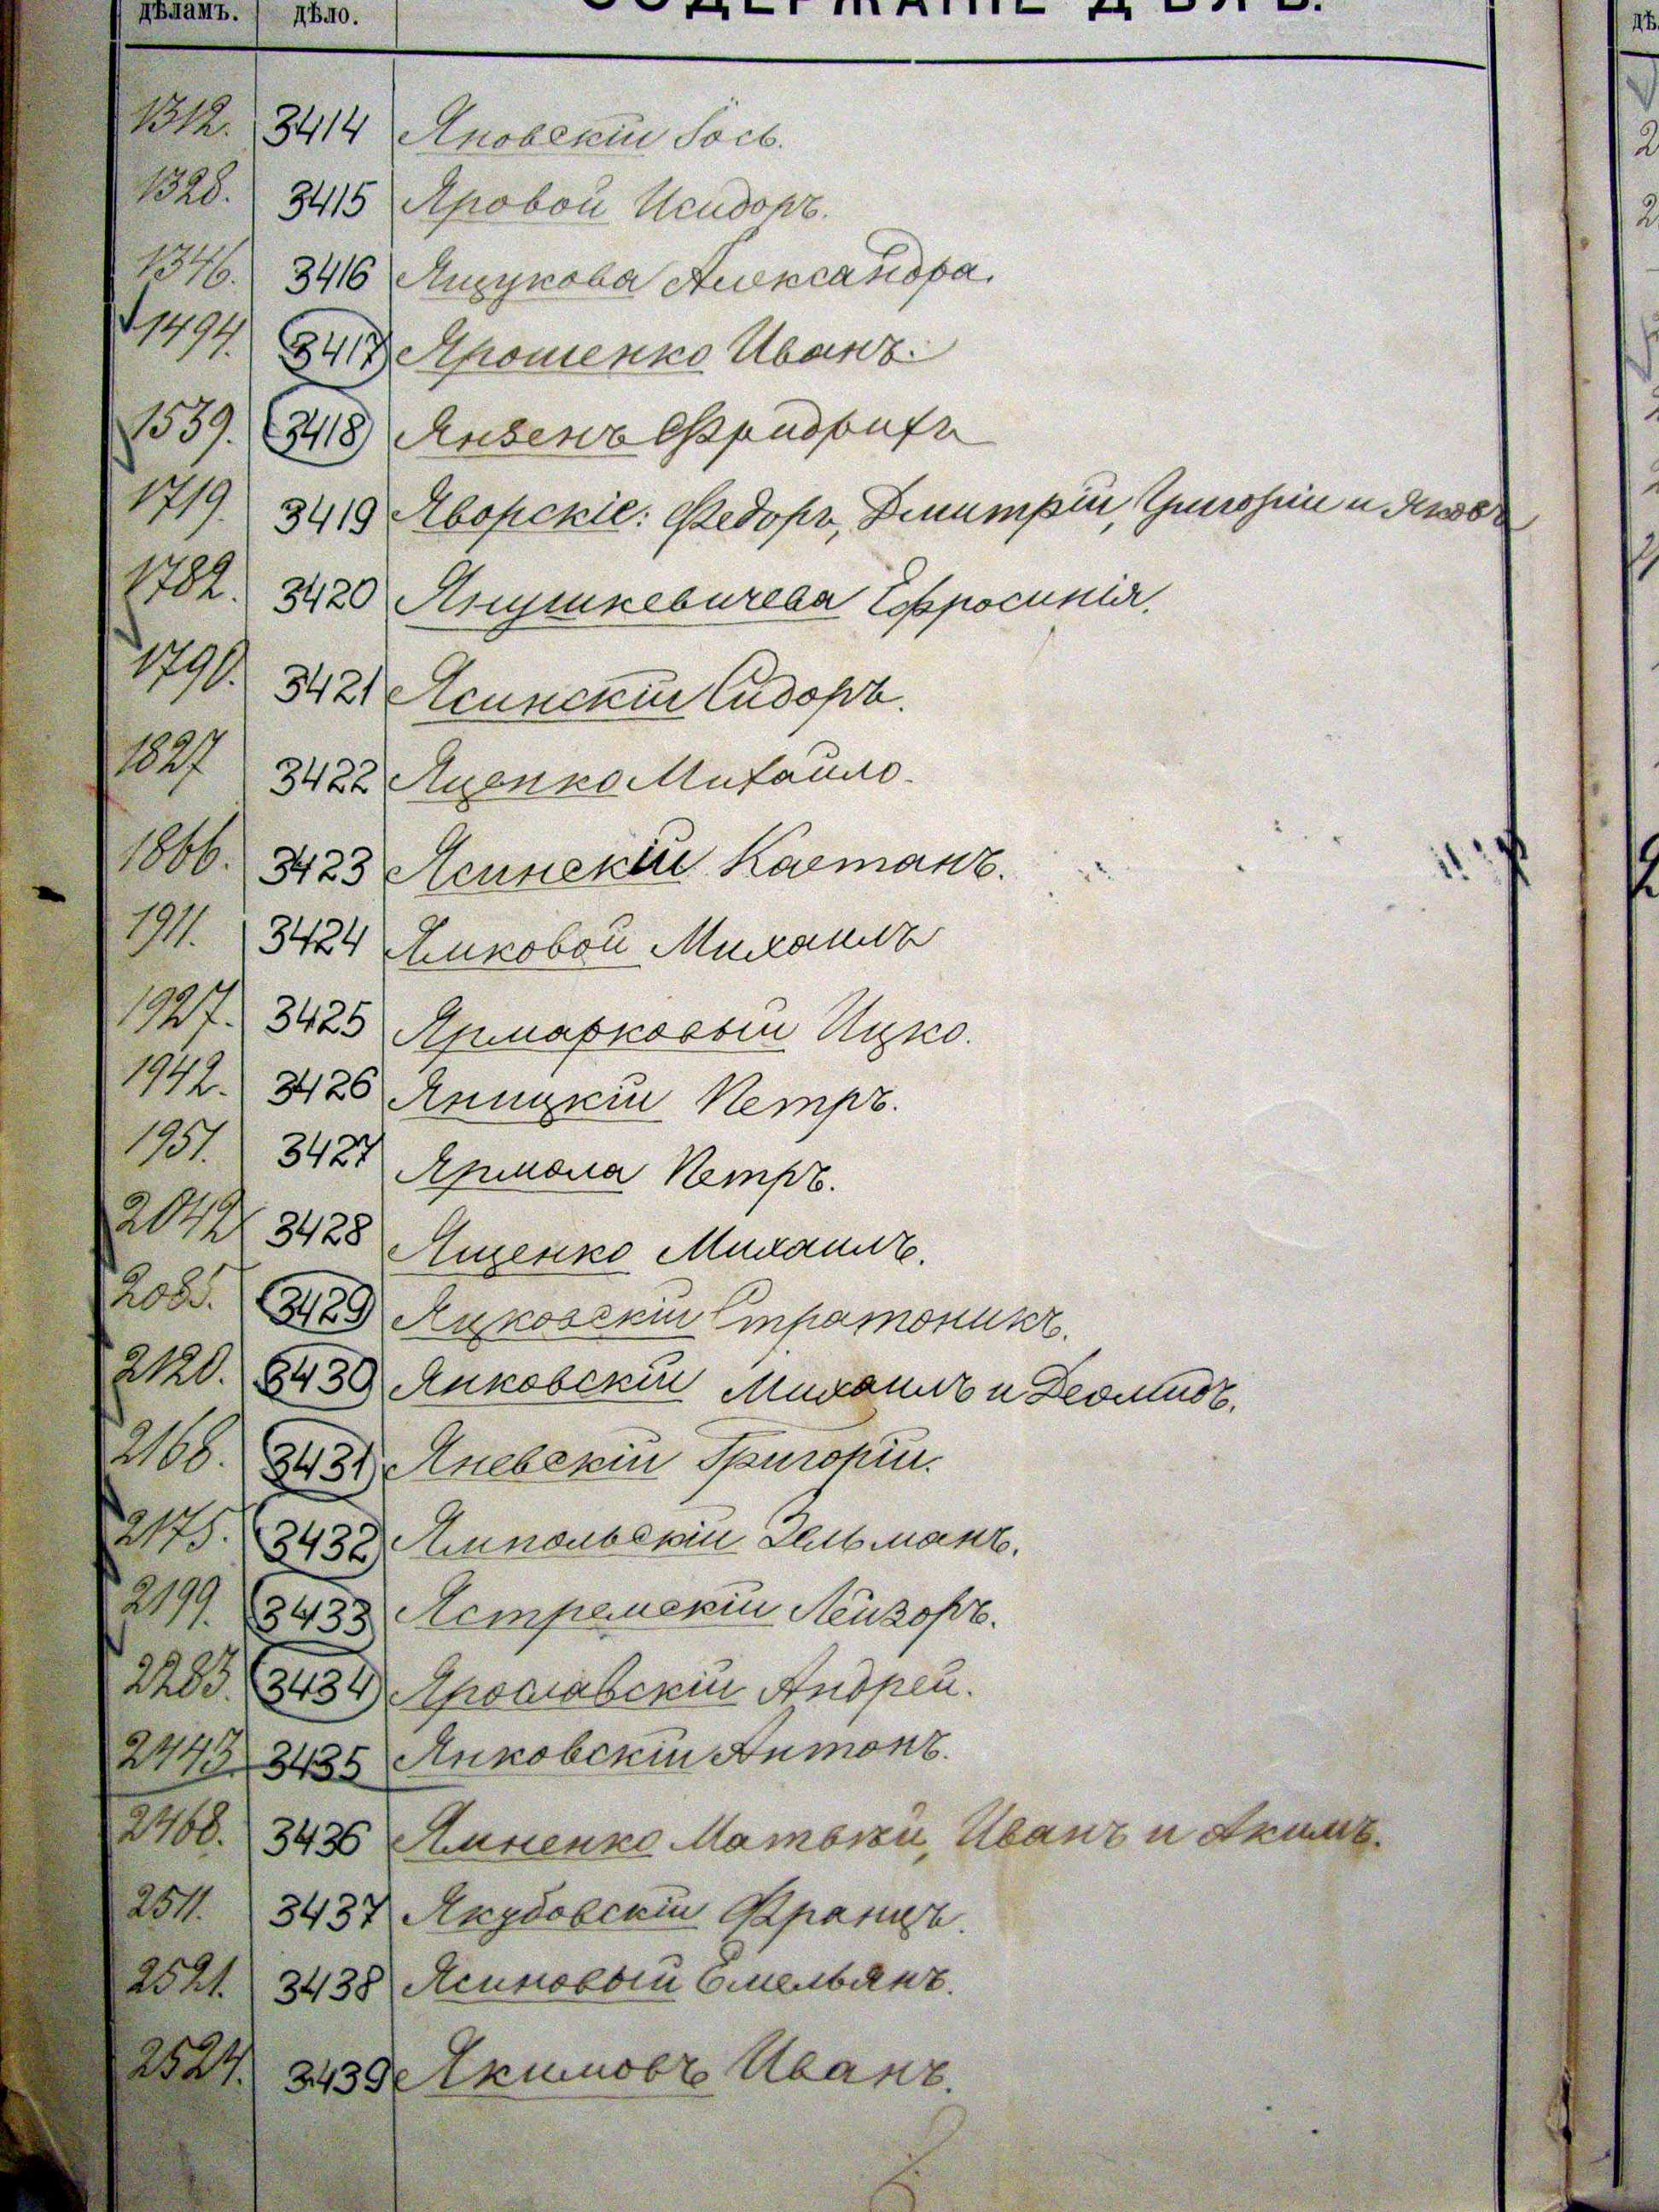 дѣламъ. дѣло. СОДЕРЖАНІЕ ДѢЛЪ.
1312. 3414 Яновскій Іось.
1328. 3415 Яровой Исидоръ.
1346. 3416 Ящукова Александра.
1494. 3417 Ярошенко Иванъ.
1539. 3418 Янзенъ Фридрихъ
1719. 3419 Яворскіе: Федоръ, Дмитрій, Григорій и Яковъ
1782. 3420 Янушкевичева Ефросинія.
1790. 3421 Ясинскій Сидоръ.
1827 3422 Яценко Михайло.
1866. 3423 Ясинскій Каетанъ.
1911. 3424 Ямковой Михаилъ
1927. 3425 Ярмарковый Ицко.
1942. 3426 Яницкій Петръ.
1951. 3427 Ярмола Петръ.
2042 3428 Ященко Михаилъ.
2085. 3429 Яцковскій Стратоникъ.
2120. 3430 Янковскій Михаилъ и Деомидъ.
2168. 3431 Яневскій Григорій.
2175. 3432 Ямпольскій Зельманъ.
2199. 3433 Ястремскій Лейзоръ.
2283. 3434 Ярославскій Андрей.
2443. 3435 Янковскій Антонъ.
2468. 3436 Ямненко Матвѣй, Иванъ и Акимъ.
2511. 3437 Якубовскій Францъ.
2521. 3438 Ясиновый Емельянъ.
2524. 3439 Якимовъ Иванъ.